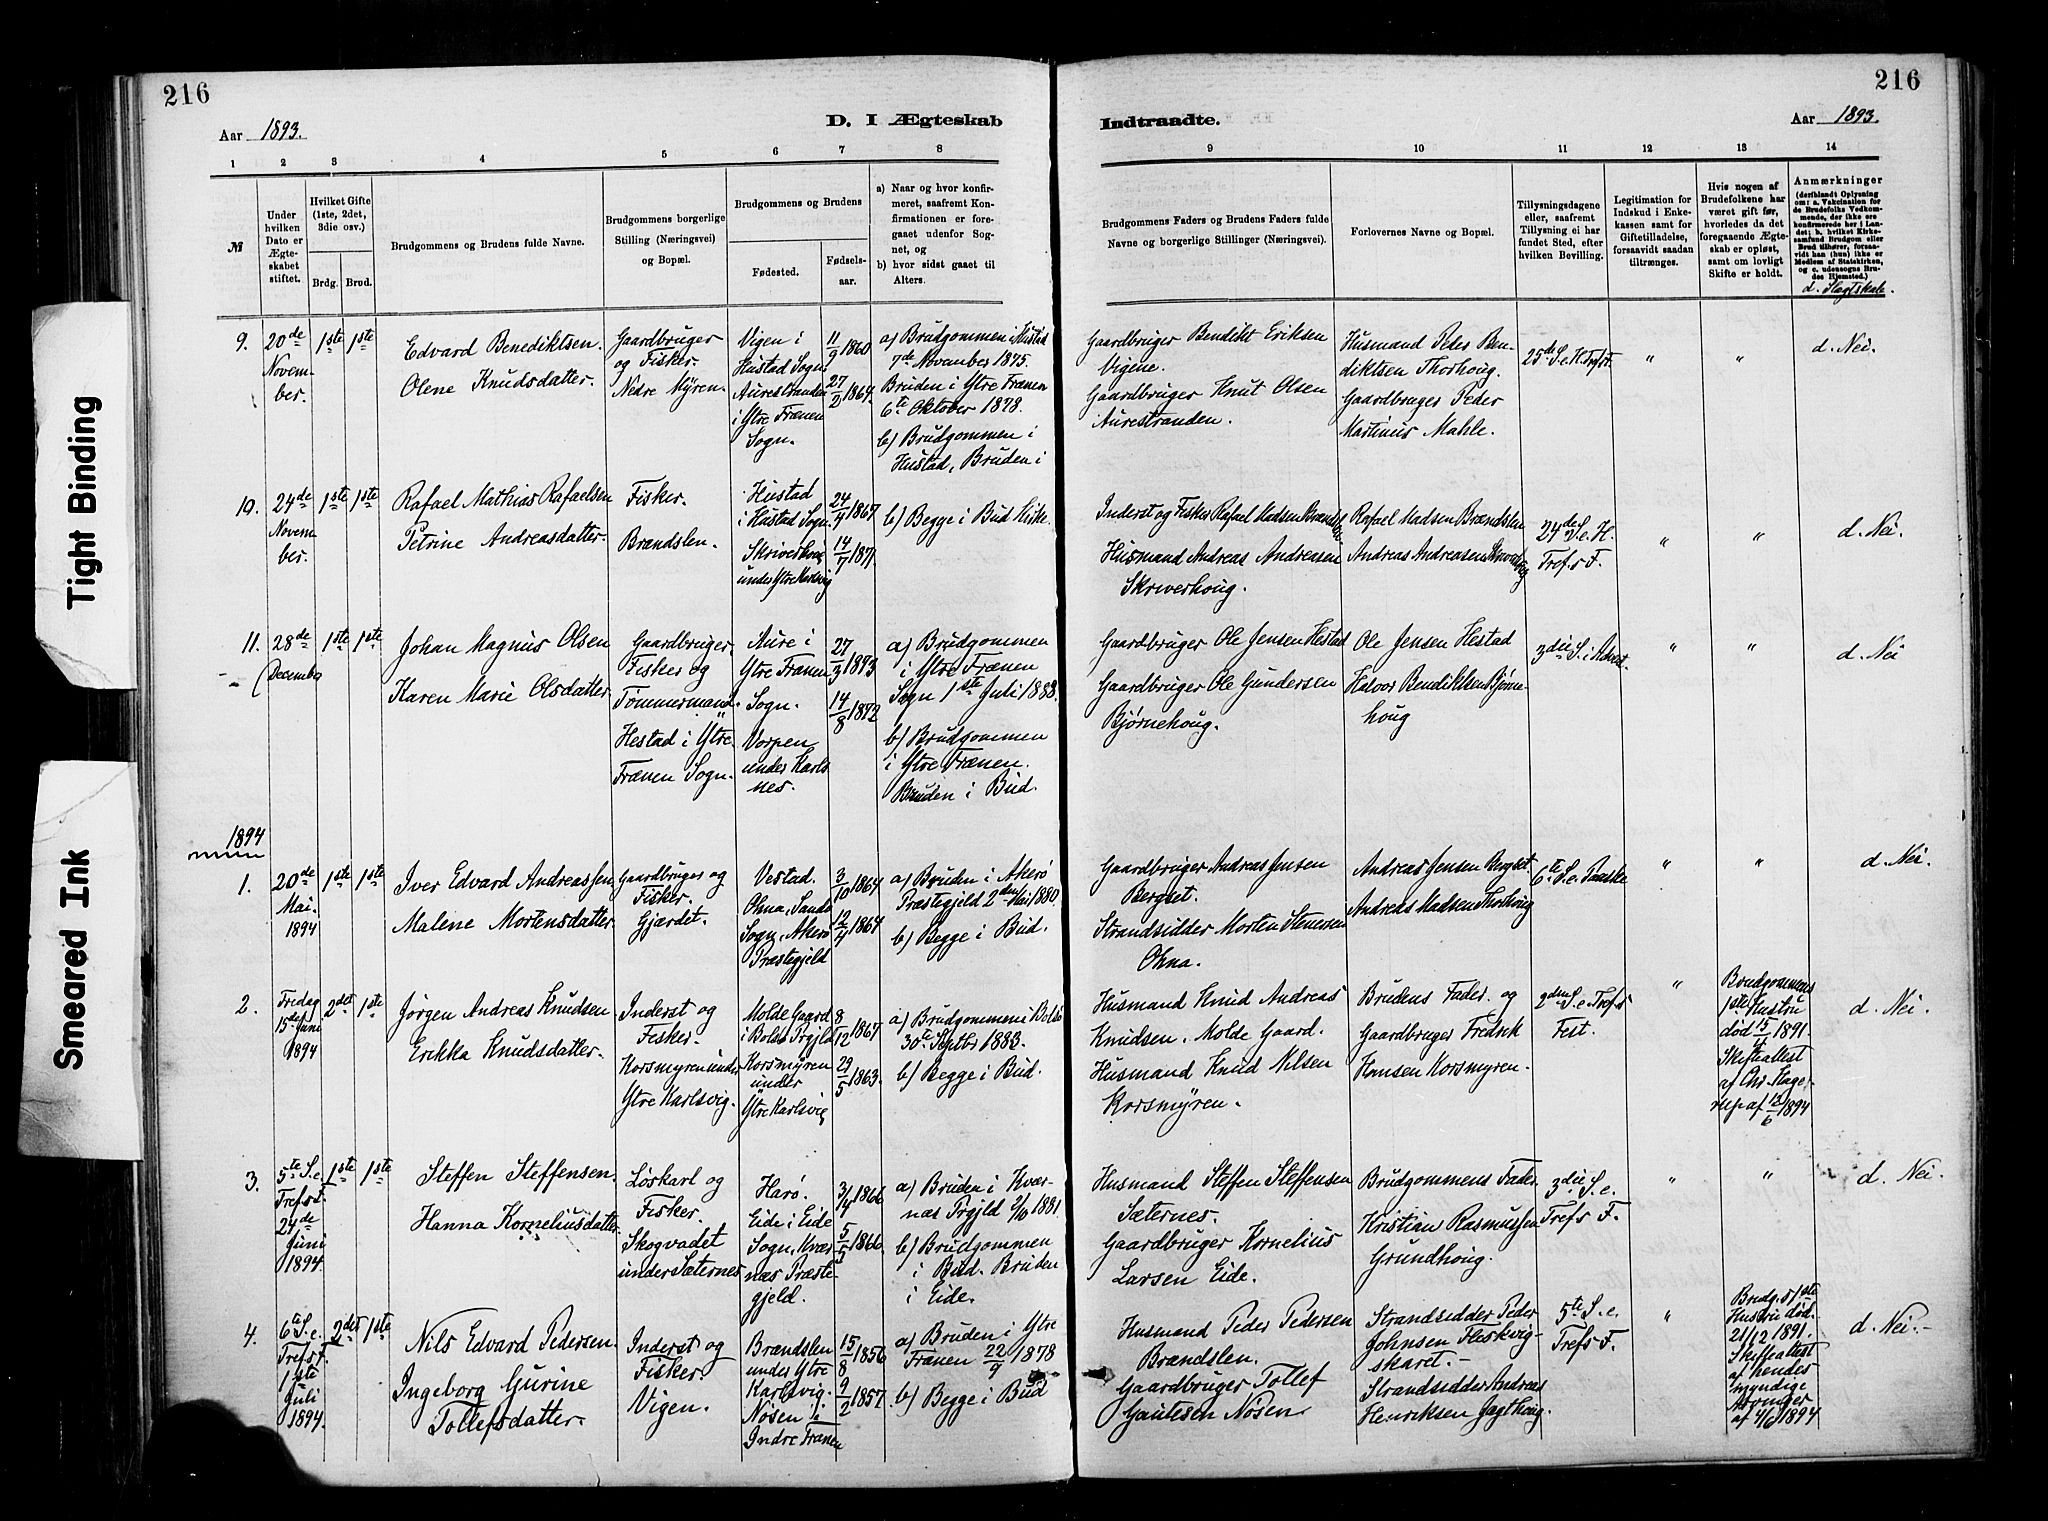 216
216
Aar 1893.
D. I Ægteskab
Indtraadte.
Aar 1893.
1 2 3 4 5 6 7 8
9 10 11 12 13 14
№
Under hvilken Dato er Ægteskabet stiftet.
Hvilket Gifte (1ste, 2det, 3die osv.)
Brdg. Brud.
Brudgommens og Brudens fulde Navne.
Brudgommens borgerlige Stilling (Næringsvei) og Bopæl.
Brudgommens og Brudens
Fødested.
Fødselsaar.
a) Naar og hvor konfirmeret, saafremt Konfirmationen er foregaaet udenfor Sognet, og
b) hvor sidst gaaet til Alters.
Brudgommens Faders og Brudens Faders fulde Navne og borgerlige Stillinger (Næringsvei).
Forlovernes Navne og Bopæl.
Tillysningsdagene eller, saafremt Tillysning ei har fundet Sted, efter hvilken Bevilling.
Legitimation for Indskud i Enkekassen samt for Giftetilladelse, forsaavidt saadan tiltrænges.
Hvis nogen af Brudefolkene har været gift før, hvorledes da det foregaaende Ægteskab er opløst, samt om lovligt Skifte er holdt.
Anmærkninger
(deriblandt Oplysning om: a. Vakcination for de Brudefolks Vedkommende, der ikke ere konfirmerede her i Landet; b. hvilket Kirkesamfund Brudgom eller Brud tilhører, forsaavidt han (hun) ikke er Medlem af Statskirken, og c. udensogns Brudes Hjemsted.)
d. Slagtskab.
9.
20de November.
1ste 1ste
Edvard Benediktsen.
Olene Knudsdatter.
Gaardbruger
og Fisker.
Nedre Myren.
Vigen i
Hustad Sogn.
Aurestranden
i Ytre Frænen
Sogn.
11/9 1860
27/2 1864.
a) Brudgommen i Hustad
7de November 1875.
Bruden i Ytre Frænen
6te Oktober 1878.
b) Brudgommen i
Hustad, Bruden i
Gaardbruger Bendikt Eriksen
Vigene.
Gaardbruger Knut Olsen
Aurestranden.
Husmand Peder Bendiktsen Thorhoug.
Gaardbruger Peder
Martinus Mahle.
25de S. e. H. Trefst.
" "
d. Nei.
10.
24de November.
1ste 1ste
Rafael Mathias Rafaelsen
Petrine Andreasdatter.
Fisker.
Brændslen.
Hustad
i Hustad Sogn.
Skriverhoug
under Ytre Karlsvig
24/4 1867
14/7 1871.
b) Begge i Bud Kirke.
Inderst og Fisker Rafael Madsen Brændslen
Husmand Andreas Andreasen
Skriverhoug.
Rafael Madsen Brændslen
Andreas Andreasen Skriverhoug
24de S. e. H.
Trefs F.
" "
d. Nei.
11.
28de
December
1ste 1ste
Johan Magnus Olsen
Karen Marie Olsdatter.
Gaardbruger
Fisker og
Tømmermand.
Hestad i Ytre
Frænen Sogn.
Aure i
Ytre Frænen
Sogn.
Vorpen
under Karlsnes.
27/3 1893
14/8 1872
a) Brudgommen
i Ytre Frænen
Sogn 1ste Juli 1888.
b) Brudgommen
i Ytre Frænen.
Bruden i Bud.
Gaardbruger Ole Jensen Hestad
Gaardbruger Ole Gundersen
Bjørnehoug.
Ole Jensen Hestad
Halvor Bendiktsen Bjørnehoug
3die S. i Advent.
" "
d. Nei
1894
1.
20de
Mai.
1894
1ste 1ste
Iver Edvard Andreassen
Malene Mortensdatter.
Gaardbruger og
Fisker.
Gjærdet.
Vestad.
Ohna, Sandø
Sogn, Akerø
Præstegjeld
3/10 1864
12/4 1864
a) Bruden i Akerø
Præstegjeld 2den Mai 1880.
b) Begge i Bud.
Gaardbruger Andreas Jensen
Bergset.
Strandsidder Morten Stenersen
Ohna.
Andreas Jensen Bergset.
Andreas Madsen Thorhoug
6te S. e. Paaske
" "
d. Nei.
2.
Fredag
15de Juni
1894
2det 1ste
Jørgen Andreas Knudsen
Erikka Knudsdatter.
Inderst og
Fisker.
Korsmyren under
Ytre Karlsvig.
Molde Gaard
i Bolsø Prgjld
Korsmyren
under
Ytre Karlsvig
8/12 1867
29/5 1863.
a) Brudgommen i Bolsø
30te Septbr 1883.
b) Begge i Bud.
Husmand Knud Andreas
Knudsen. Molde Gaard.
Husmand Knud Nilsen
Korsmyren.
Brudens Fader. og
Gaardbruger Fredrik
Hansen Korsmyren.
2den S. e. Trefs
Fest.
"
Brudgommens
1ste Hustru
død 15/4 1891.
Skifteattest
af 13/6 1894
d. Nei.
3.
5te S. e.
Trefs F.
24de
Juni
1894.
1ste 1ste
Steffen Steffensen.
Hanna Korneliusdatter.
Løskarl og
Fisker.
Skogvadet
under Sæternes
Harø.
Eide i Eide
Sogn, Kværnæs Præstegjeld.
3/4 1866
5/5 1866.
a) Bruden i Kværnæs Prgjld 2/10 1881
b) Brudgommen
i Bud. Bruden
i Eide.
Husmand Steffen Steffensen
Sæternes.
Gaardbruger Kornelius
Larsen Eide.
Brudgommens Fader
Kristian Rasmussen
Grundhoug.
3die S. e.
Trefs F.
" "
d. Nei.
4.
6te S. e.
Trefs F.
1ste
Juli
1894.
2det 1ste
Nils Edvard Pedersen
Ingeborg Gurine
Tollefsdatter.
Inderst og
Fisker.
Vigen.
Brændslen
under Ytre
Karlsvig.
Nøsen i
Indre Frænen
15/8 1856
9/2 1857.
a) Bruden i Ytre
Frænen 22/9 1878
b) Begge i Bud
Husmand Peder Pedersen
Brændslen.
Gaardbruger Tollef
Gautesen Nøsen.
Strandsidder Peder
Johnsen Fleskvigskaret.
Strandsidder Andreas
Henriksen Jagthoug.
5te S. e.
Trefs F.
"
Brudg.s 1ste
Hustru død.
21/12 1891.
Skifteattest
af hendes
myndige
Arvinger
af 4/6 1894
d. Nei.
Tight Binding
Smeared Ink